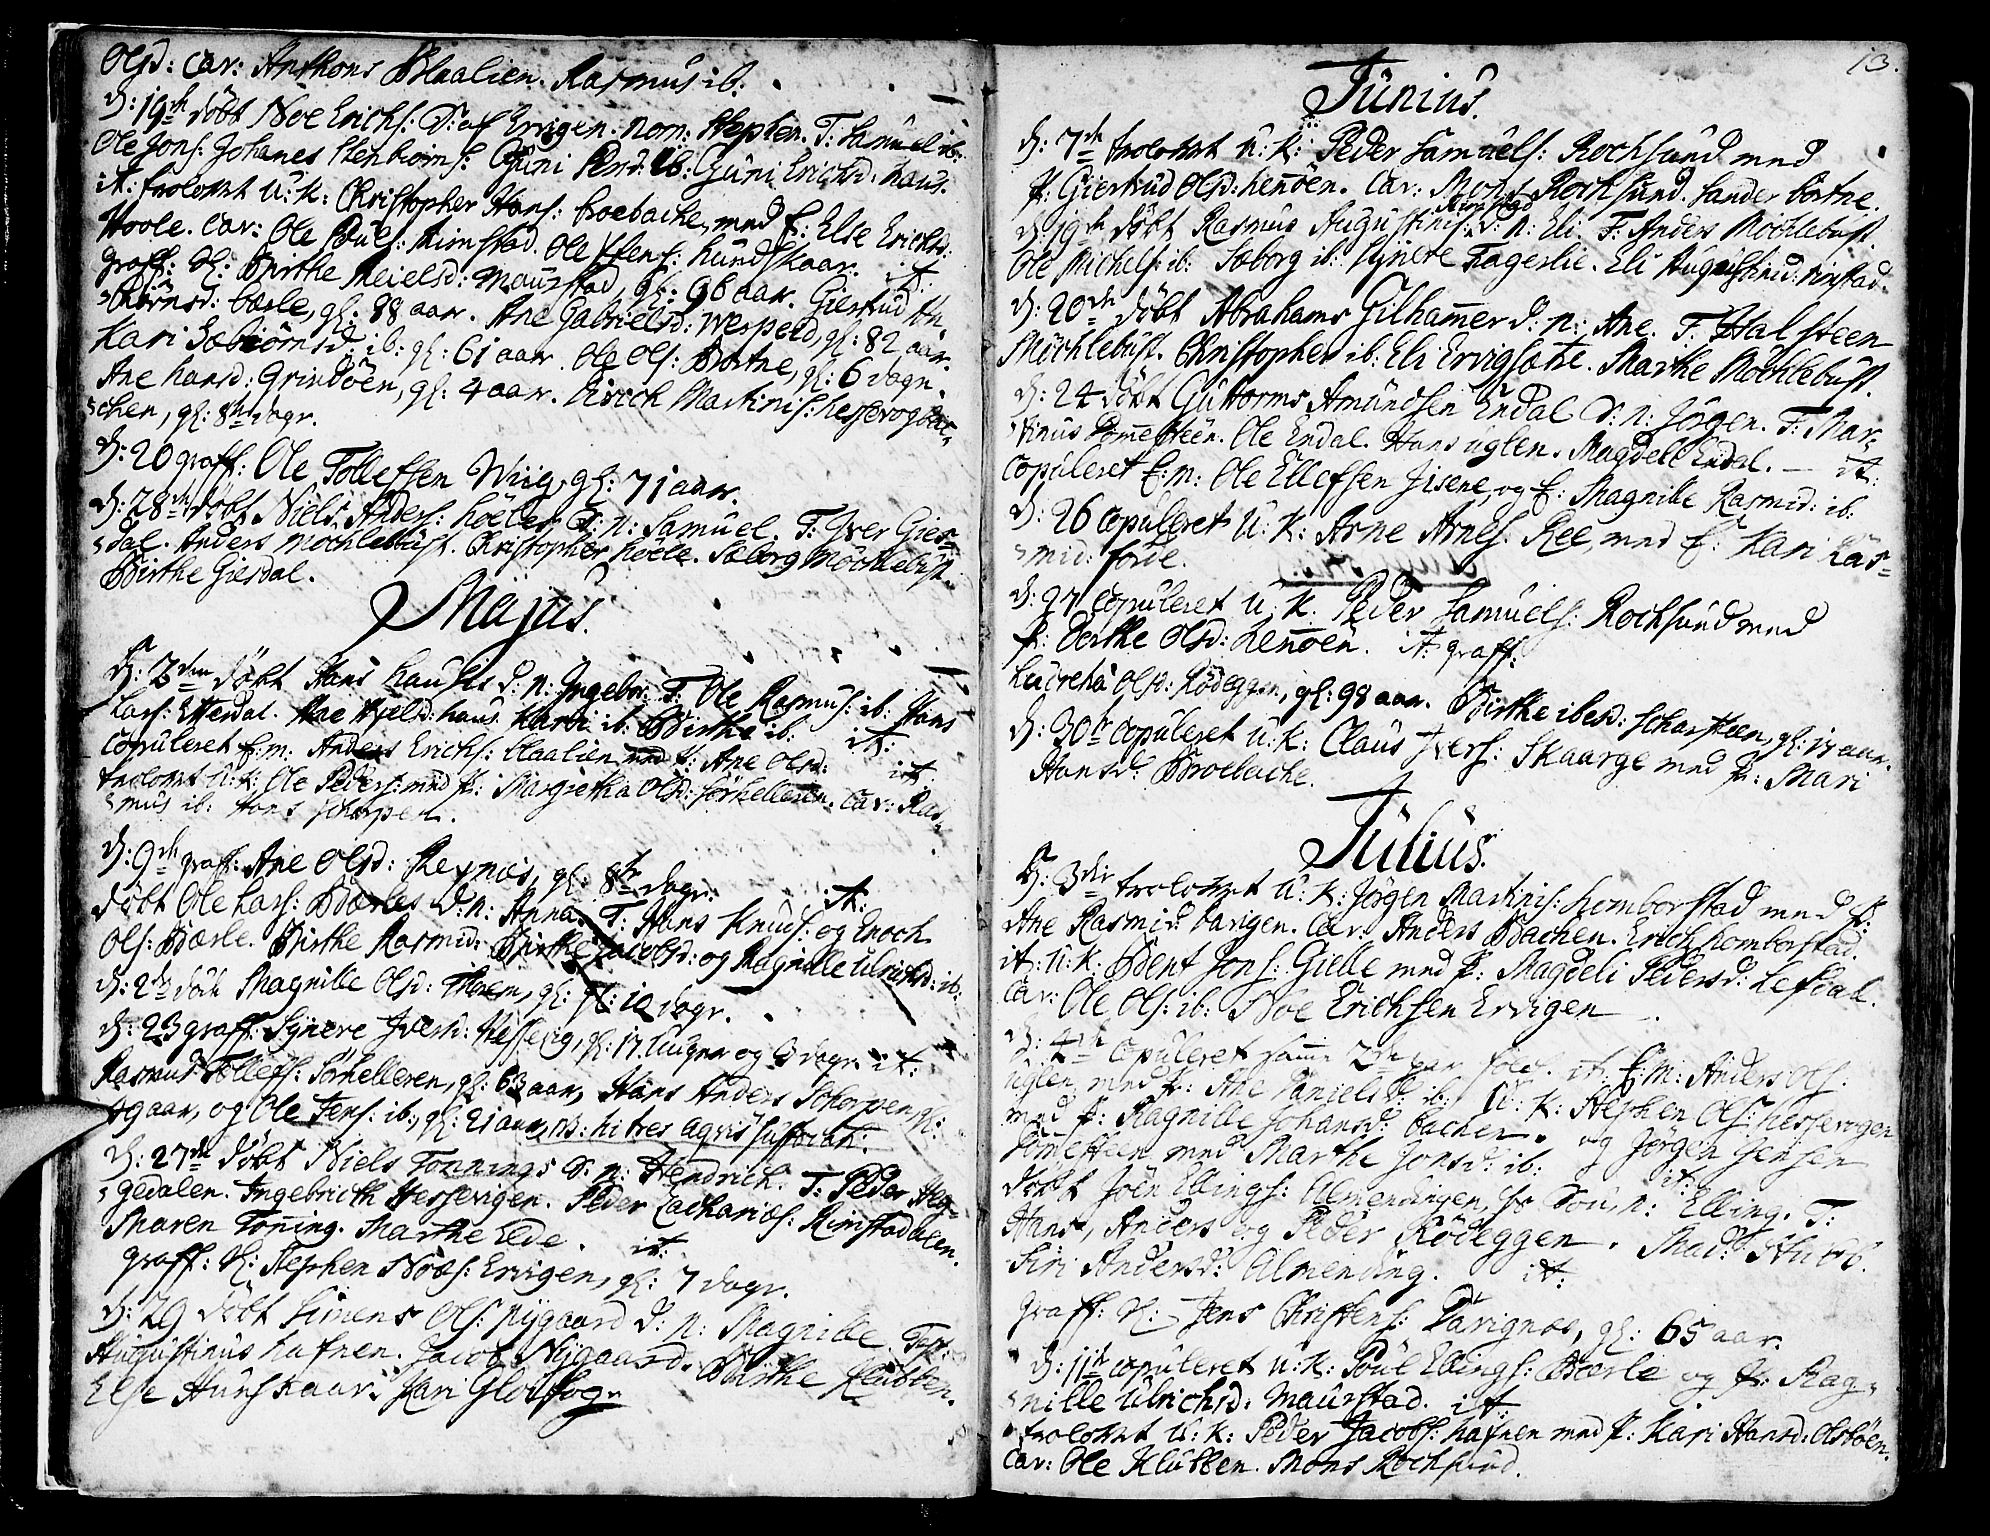 Olsd: Cav: Anthons Blaalien. Rasmus ib.
d: 19de döbt Noe Erichs: S: af Ervigen. nom: Stephen. T: Samuel ib:
Ole Jons: Johanes Stenbiörns: Guni Persd: ib: Guni Erichsd: haus.
it: trolovet U: K: Christopher Hans: boebache, med P: Else Erichsd:
Hoole. Cav: Ole Pouls: Rimstad. Ole Stens: hundskaar. it:
graff: N: Birthe Neielsd: Maurstad, gl: 96 aar. Giertrud An-
biörnsd: bærle, gl: 88 aar. Ane Gabrielsd: Werpeid, gl: 82 aar.
Kari Sæbiörnsd: ib: gl: 61 aar. Ole Ols: Bortne, gl: 6 dage.
Ane hansd: Grindöen, gl: 4 aar. Erich Martinis: hessevogbac-
chen, gl: 8te dage.
d: 20 graff: Ole Tollefsen Wiig, gl: 71 aar.
d: 28de döbt Niels Anders: höeles S: n: Samuel. T: Iver Gies-
dal. Anders Mochlebust. Christopher hoele. Sæborg Möchlebust
Birthe Giesdal.
Majus.
d: 3den döbt Hans hauges d: n: Ingebor. T: Ole Rasmus: ib: Hans
Lars: Ettesdal. Ane Njelsd: haus. Kari ib: Birthe ib: it:
copuleret E: m: Anders Erichs: blaalien med P: Ane Olsd: it:
trolovet U: K: Ole Peders: med P: Margretha Olsd: Sörhelleren. Cav: Ras-
mus ib: Hans Schorpen.
d: 9de graff: Ane Olsd: Reynæs, gl: 8te dage. it:
döbt Ole Lars: Bærles d: n: Anna. T: Hans Knuds: og Enoch
Ols: Bærle. Birthe Rasmid: Birthe Jacobsd: og Ragnille Ulrichsd: ib:
d: döde Magnille Olsd: gl: 10 dage.
d: 23 graff: Synere Iversd: Hessevig, gl: 17 Uuger og 3 dage. it:
Rasmus Tollefs: Sörhelleren, gl: 63 aar, Hans Anders: Schorpen, gl:
49 aar, og Ole Jens: ib: gl: 21 aar, NB: hi tres aqvis suffocati:
d: 27de döbt Niels Tonnings S: n: Hendrich. T: Peder Hen-
gedalen. Ingebricth Hessevigen. Peder Zacharias: Rimstadalen.
Maren Tonning. Marthe Eede. it:
graff: N: Stephen Noæs: Ervigen, gl: 7 dage.
d: 29 döbt Simens Ols: Nygaard d: n: Magnille. Test:
Augustinus hafnen. Jacob Nygaard. Birthe Klubben.
Else Hunskaar. Kari Gloppog
13.
Junius.
d: 7de trolovet U: K: Peder Samuels: Rochsund med
P: Giertrud Olsd: henöen. Cav: Mons Rochsund. Sander bortne.
d: 19de döbt Rasmus Augustinis: Rimstad d: n: Eli. T: Anders Mochlebust.
Ole Michels: ib: Sæborg ib: Synere Fagerlie. Eli Augustinid: Rimstad.
d: 20de döbt Abrahams Gilhamer d: n: Ane. T: Halsteen
Möchlebust. Christopher ib: Eli Ervigsætre. Marthe Möchlebust.
d: 24 döbt Guttorms Amundsen Endal S: n: Jörgen. T: Mar-
tinus Tomesteen. Ole Endal. Hans uglen. Magdeli Endal. - it:
copuleret E: m: Ole Ellefsen Jisene, og E: Magnille Rasmid: ib:
d: 26 copuleret U: K: Arne Arnes: Ree, med E: Kari Ras-
mid: förde.
d: 27 copuleret U: K: Peder Samuels: Rochsund med
P: Berthe Olsd: Henöen. it: graff:
Lucretia Olsd: Rödeggen, gl: 98 aar. Birthe ibesd: Scharsteen, gl: 17 aar.
d: 30te copuleret U: K: Claus Ivers: Skaarge med P: Mari
Hansd: Broebache.
Julius.
d: 3die trolovet U: K: Jörgen Martinis: hemborstad med P:
Ane Rasmid: barigen. Cav: Anders Bachen. Erich hemborstad.
it: U: K: Bent Jons: Gielle med P: Magdeli Pedersd: Lefdal.
Cav: Ole Ols: ib: Noe Erichsen Ervigen
d: 4de copuleret samme 2de par folk. it: E: m: Anders Ols:
uglen, med P: Ane Danielsd: ib: U: K: Stephen Ols: hessevigen
med P: Ragnille Johansd: bachen. og Jörgen Jensen
Tomesteen med Marthe Jonsd: ib: it:
döbt Joen Ellings: Almendingen, hs Sön, n: Elling. T:
Hans, Anders og Peder Rödeggen. Mad: Aubb.
Siri Andersd: Almending. it:
graff: N: Jens Christens: Davignæs, gl: 65 aar.
d: 11te copuleret U: K: Poul Ellings: Bærle og P: Rag-
nille Ulrichsd: Maurstad. it:
trolovet U: K: Peder Jacobs: hafnen med P: Kari Hansd: Osböen.
Cav: Ole Klubben. Mons Rochsund.